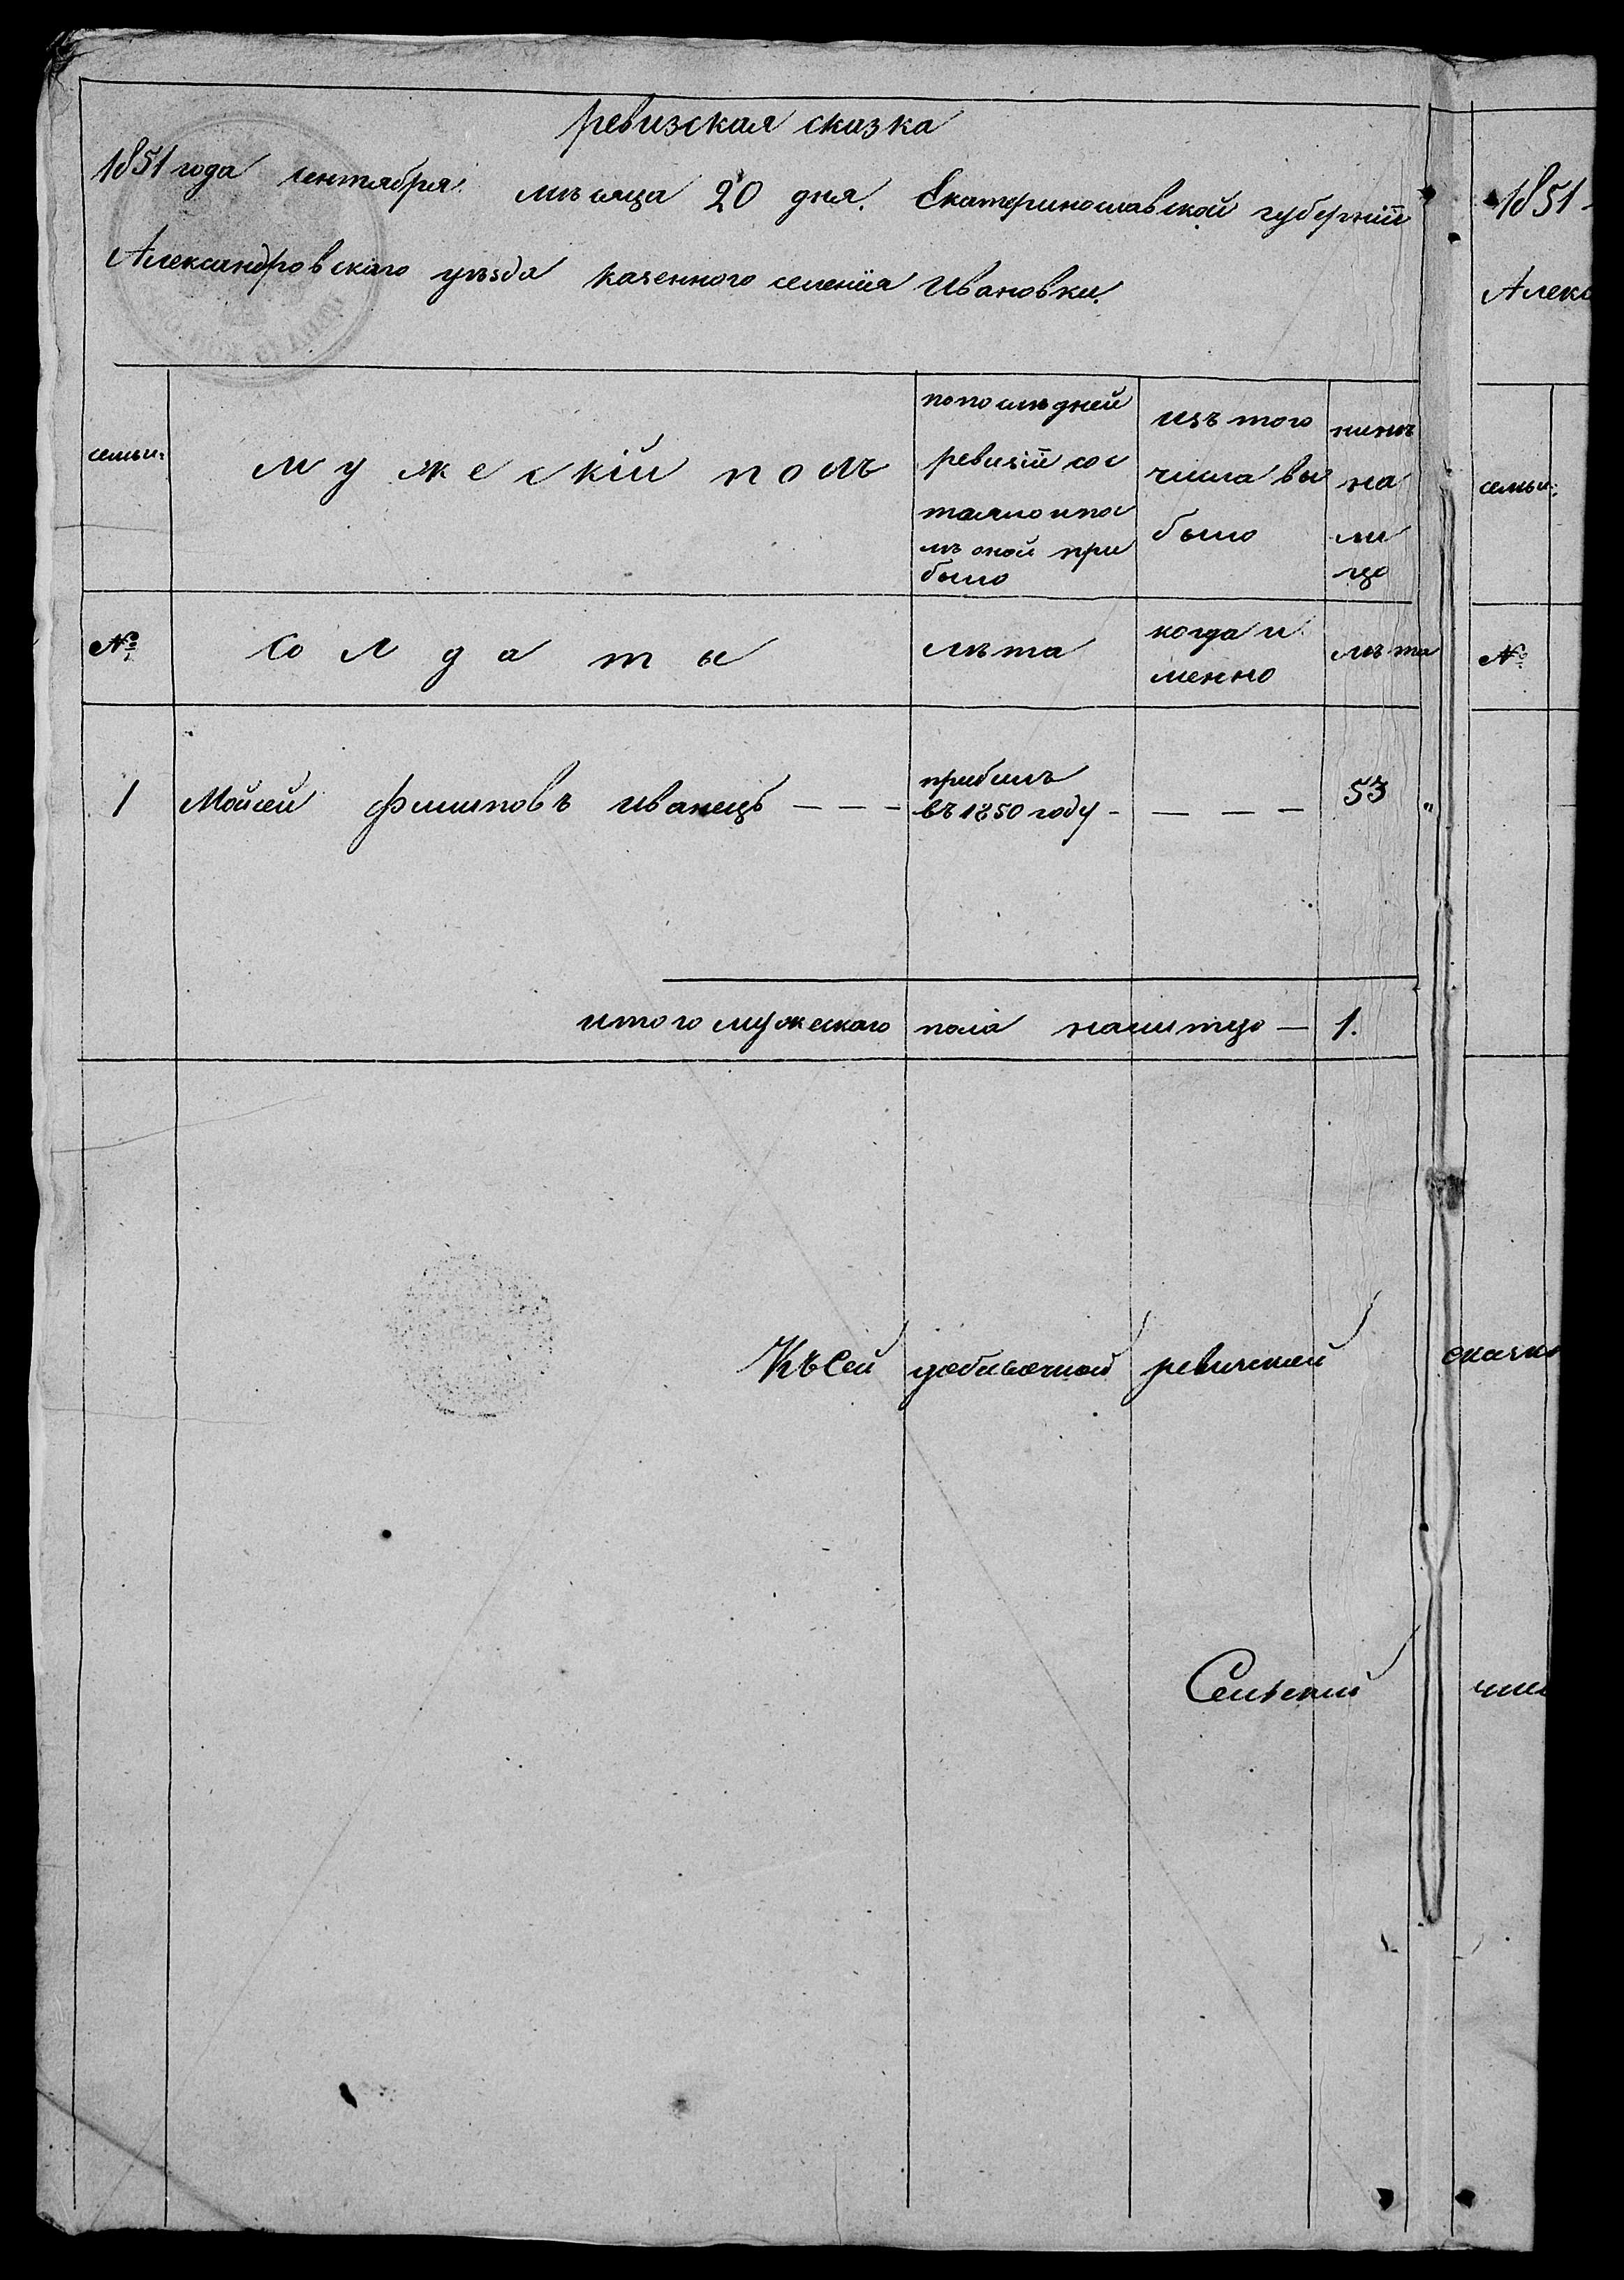 ревизская сказка
1851 года сентября мѣсяца 20 дня. Екатеринославской губерніи
Александровскаго уѣзда казенного селенія Ивановки.
семьи:
мужескій полъ
попослѣдней
ревизіи сос
тояло и пос
лѣ оной при
было
изъ того
числа вы
было
нынѣ
на
ли
цо
№
солдаты
лѣта
когда и
менно
лѣта
1 Мойсей Филиповъ Иванецъ — — —
прибылъ
въ 1850 году - — — — 53 "
итого мужескаго пола налитцо — 1.
Къ сей ревизской сказке
Сельский
1851
Алекс
семьи:
№